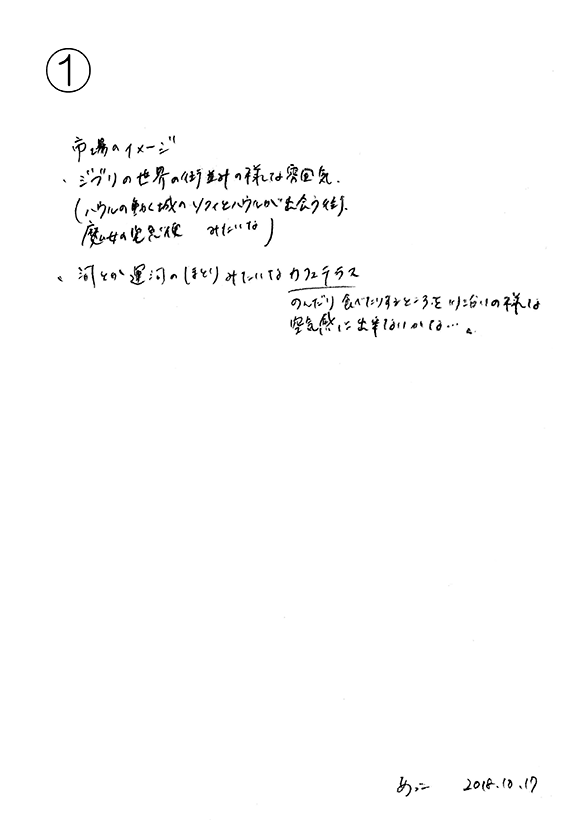 ①
市場のイメージ
・ジブリの世界の街並みの様な雰囲気.
(ハウルの動く城のソフィとハウルが出会う街.
魔女の宅急便 みたいな)
・河とか運河のほとりみたいなカフェテラス
のんだり食べたりするところを川沿いの様な
空気感に出来ないかな…。
あっこ 2018.10.17